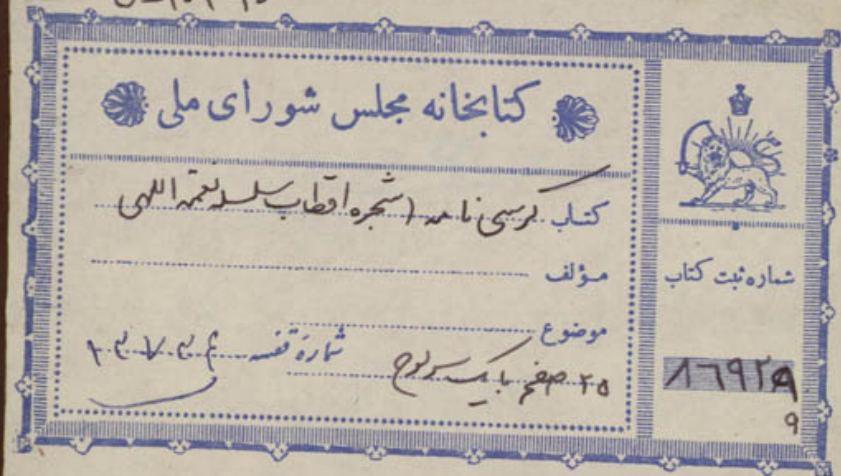 کتابخانه مجلس شورای ملی
کتاب کرسی نامه (شجره اقطاب سلسله نعمة اللهی
مؤلف
موضوع
شمارۀ قفسه ۱۳۷۳۴
۲۵ صفحه با یک سرلوح
شماره ثبت کتاب
۸۶۹۲۹
۹